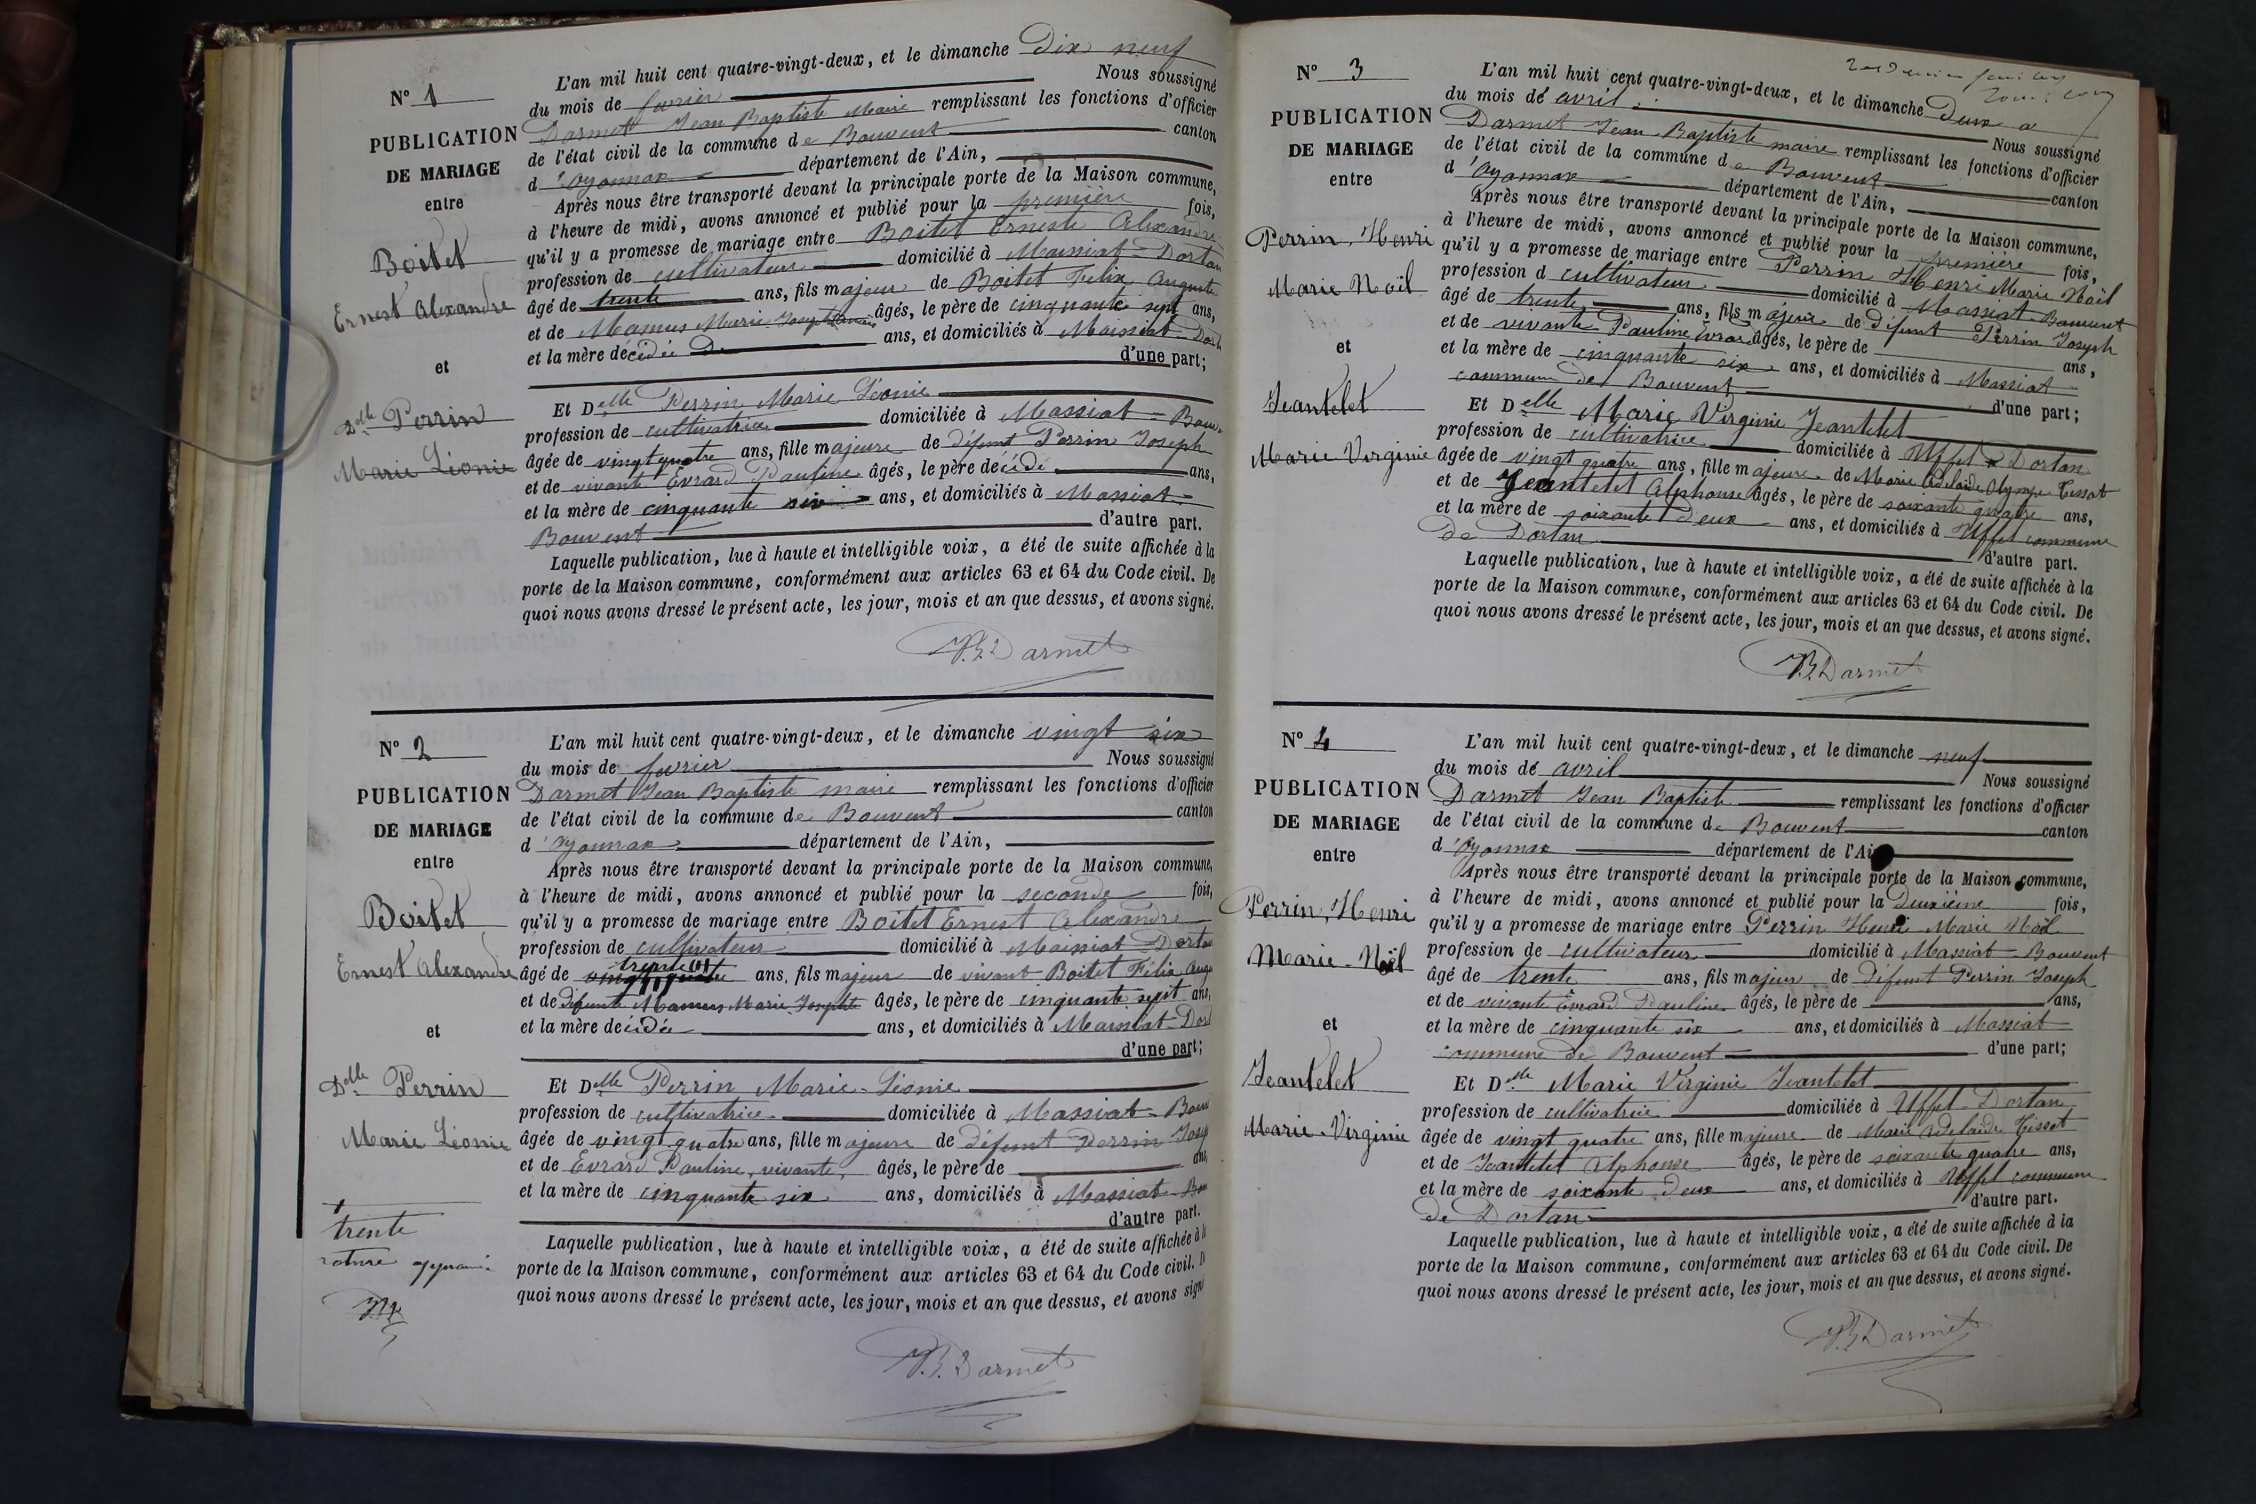 N° 1
PUBLICATION
DE MARIAGE
entre
Boitet
Ernest Alexandre
et
Dlle Perrin
Marie Léonie
L'an mil huit cent quatre-vingt-deux, et le dimanche Dix neuf
du mois de fevrier Nous soussigné
Darmet Jean Baptiste Maire remplissant les fonctions d'officier
de l'état civil de la commune de Bouvent canton
d'Oyonnax département de l'Ain,
Après nous être transporté devant la principale porte de la Maison commune,
à l'heure de midi, avons annoncé et publié pour la première fois,
qu'il y a promesse de mariage entre Boitet Erneste Alexandre
profession de cultivateur domicilié à Maissiat-Dortan
âgé de trente ans, fils majeur de Boitet Felix Auguste
et de Mamus Marie Josephte âgés, le père de cinquante sept ans,
et la mère décédée ans, et domiciliés à Maissiat-Dort
d'une part;
Et Delle Perrin Marie Léonie
profession de cultivatrice domiciliée à Massiat-Bouv
âgée de vingt quatre ans, fille majeure de défunt Perrin Joseph
et de vivante Evrard Pauline âgés, le père décédé ans,
et la mère de cinquante six ans, et domiciliés à Massiat-
Bouvent d'autre part.
Laquelle publication, lue à haute et intelligible voix, a été de suite affichée à la
porte de la Maison commune, conformément aux articles 63 et 64 du Code civil. De
quoi nous avons dressé le présent acte, les jour, mois et an que dessus, et avons signé.
J.B. Darmet
N° 2
PUBLICATION
DE MARIAGE
entre
Boitet
Ernest Alexandre
et
Dlle Perrin
Marie Léonie
trente
L'an mil huit cent quatre-vingt-deux, et le dimanche vingt six
du mois de fevrier Nous soussigné
Darmet Jean Baptiste maire remplissant les fonctions d'officier
de l'état civil de la commune de Bouvent canton
d'Oyonnax département de l'Ain,
Après nous être transporté devant la principale porte de la Maison commune,
à l'heure de midi, avons annoncé et publié pour la seconde fois,
qu'il y a promesse de mariage entre Boitet Ernest Alexandre
profession de cultivateur domicilié à Maissiat Dorta
âgé de trente ans, fils majeur de vivant Boitet Félix Augu
et de défunte Mamus Marie Josephte âgés, le père de cinquante sept ans,
et la mère décédée ans, et domiciliés à Maissiat-Dort
d'une part;
Et Delle Perrin Marie-Léonie
profession de cultivatrice domiciliée à Massiat-Bouv
âgée de vingt quatre ans, fille majeure de défunt Perrin Josep
et de Evrard Pauline, vivante, âgés, le père de ans,
et la mère de cinquante six ans, domiciliés à Massiat-Bou
d'autre part.
Laquelle publication, lue à haute et intelligible voix, a été de suite affichée à l
porte de la Maison commune, conformément aux articles 63 et 64 du Code civil. D
quoi nous avons dressé le présent acte, les jour, mois et an que dessus, et avons sign
J.B. Darmet
N° 3
PUBLICATION
DE MARIAGE
entre
Perrin, Henri
Marie Noël
et
Jeantelet
Marie Virginie
L'an mil huit cent quatre-vingt-deux, et le dimanche Deux
du mois de avril Nous soussigné
Darmet Jean Baptiste maire remplissant les fonctions d'officier
de l'état civil de la commune de Bouvent canton
d'Oyonnax département de l'Ain,
Après nous être transporté devant la principale porte de la Maison commune,
à l'heure de midi, avons annoncé et publié pour la première fois,
qu'il y a promesse de mariage entre Perrin Henri Marie Noël
profession d cultivateur domicilié à Massiat-Bouvent
âgé de trente ans, fils majeur de défunt Perrin Joseph
et de vivante Pauline Evrard âgés, le père de ans,
et la mère de cinquante six ans, et domiciliés à Massiat
commune de Bouvent d'une part;
Et Delle Marie Virginie Jeantelet
profession de cultivatrice domiciliée à Uffel Dortan
âgée de vingt quatre ans, fille majeure de Marie Adelaide Olympe Tissot
et de Jeantelet Alphonse âgés, le père de soixante quatre ans,
et la mère de soixante deux ans, et domiciliés à Uffel commune
de Dortan d'autre part.
Laquelle publication, lue à haute et intelligible voix, a été de suite affichée à la
porte de la Maison commune, conformément aux articles 63 et 64 du Code civil. De
quoi nous avons dressé le présent acte, les jour, mois et an que dessus, et avons signé.
J.B. Darmet
N° 4
PUBLICATION
DE MARIAGE
entre
Perrin, Henri
Marie-Noël
et
Jeantelet
Marie-Virginie
L'an mil huit cent quatre-vingt-deux, et le dimanche neuf
du mois de avril Nous soussigné
Darmet Jean Baptiste remplissant les fonctions d'officier
de l'état civil de la commune de Bouvent canton
d'Oyonnax département de l'Ai
Après nous être transporté devant la principale porte de la Maison commune,
à l'heure de midi, avons annoncé et publié pour la Deuxième fois,
qu'il y a promesse de mariage entre Perrin Henri Marie Noël
profession de cultivateur domicilié à Massiat-Bouvent
âgé de trente ans, fils majeur de défunt Perrin Joseph
et de vivante Evrard Pauline âgés, le père de ans,
et la mère de cinquante six ans, et domiciliés à Massiat
commune de Bouvent d'une part;
Et Delle Marie Virginie Jeantelet
profession de cultivatrice domiciliée à Uffel-Dortan
âgée de vingt quatre ans, fille majeure de Marie Adelaide Tissot
et de Jeantelet Alphonse âgés, le père de soixante quatre ans,
et la mère de soixante deux ans, et domiciliés à Uffel commune
de Dortan d'autre part.
Laquelle publication, lue à haute et intelligible voix, a été de suite affichée à la
porte de la Maison commune, conformément aux articles 63 et 64 du Code civil. De
quoi nous avons dressé le présent acte, les jour, mois et an que dessus, et avons signé.
J.B. Darmet